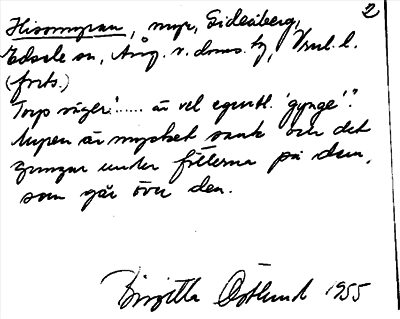 2
Hisomyran, myr, Gideåberg,
Edsele sn, Ång. v. doms. tg, Vnl. l.
(forts.)
Torp säger: '...... är vel egentl. 'gynge'.'
Myren är mycket sank och det
gungar under fötterna på dem,
som går över den.
Birgitta Östlund 1955